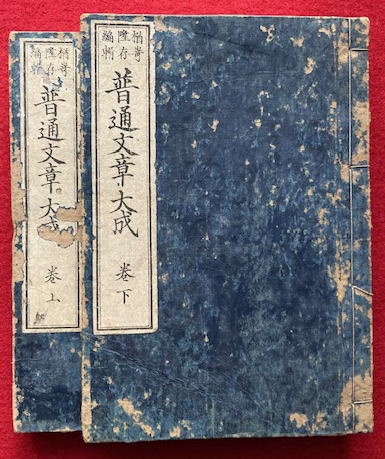 楢嵜
隆存
編輯
普通文章大成
巻下
楢嵜
隆存
編輯
普通文章大成
巻上